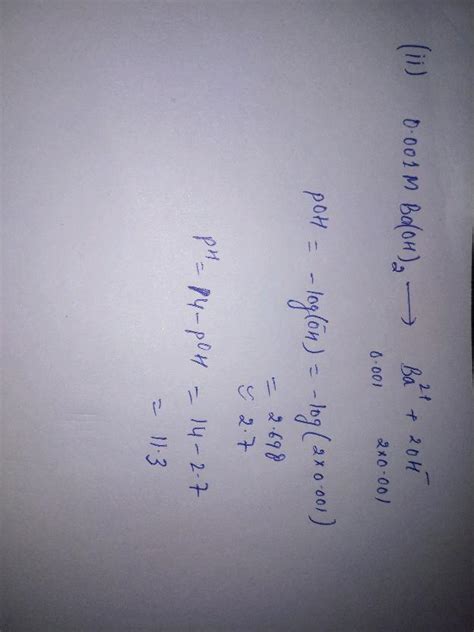 (ii) 0.001 M Ba(OH)₂ ⟶ Ba²⁺ + 2OH⁻
0.001 2×0.001
pOH = -log(OH⁻) = -log(2×0.001)
= 2.698
≃ 2.7
pH = 14 - pOH = 14 - 2.7
= 11.3